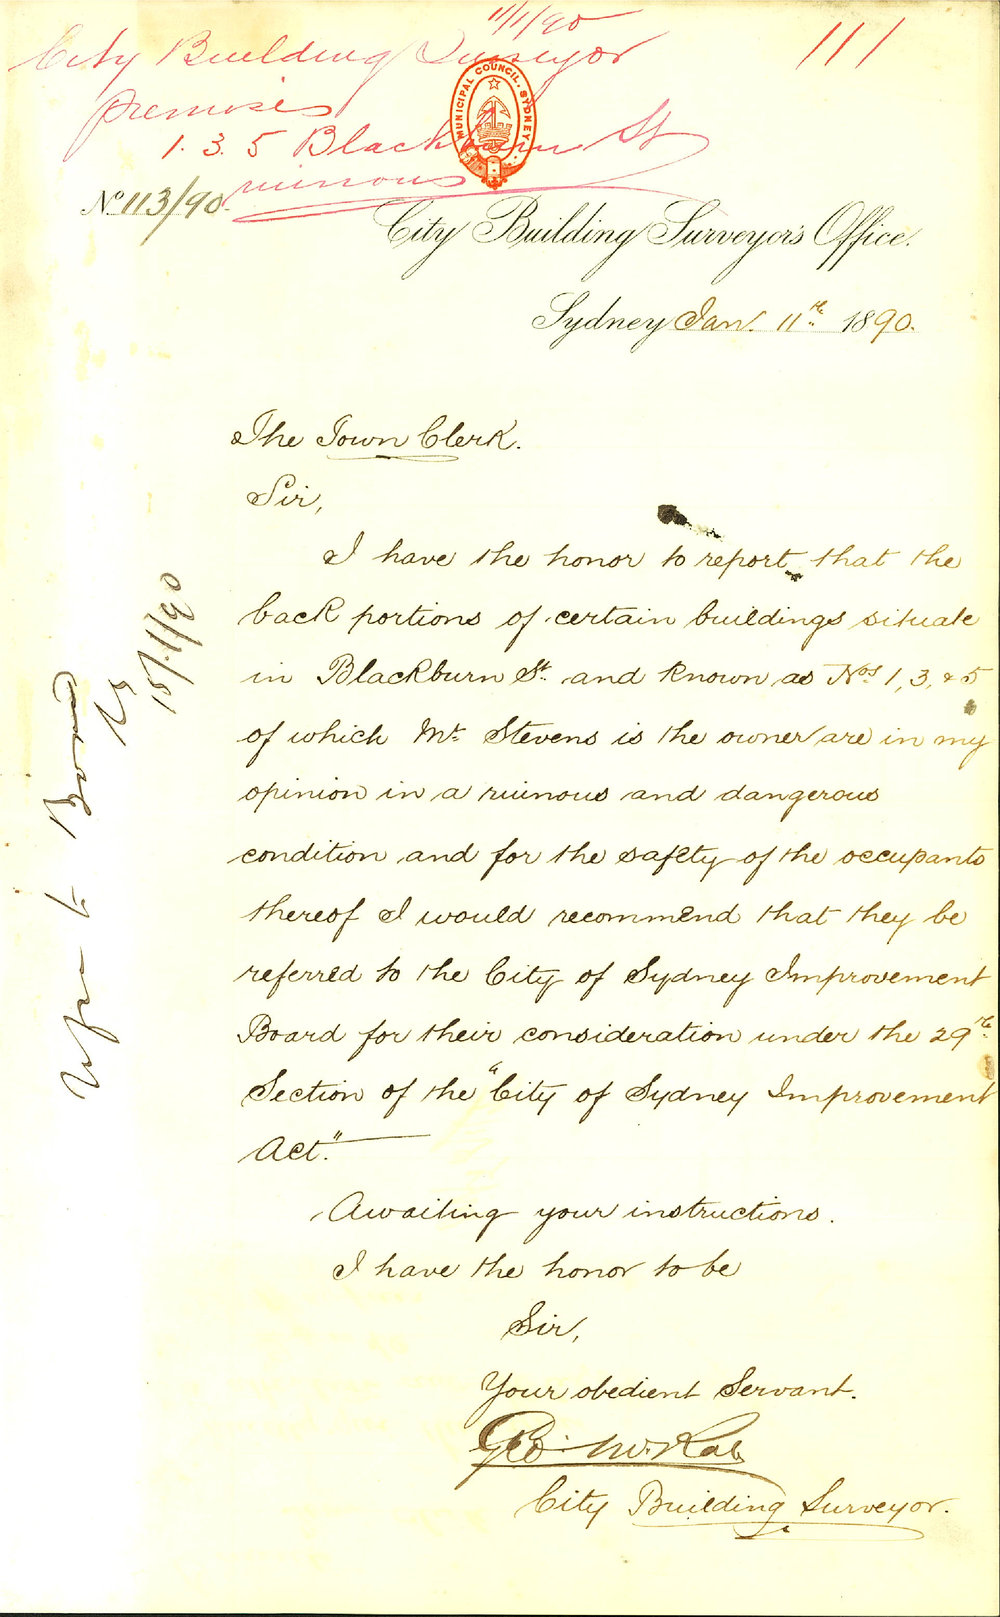 11/1/90
City Building Surveyor
111
premises
1. 3. 5 Blackburn St
ruinous
MUNICIPAL COUNCIL. SYDNEY.
No. 113/90.
City Building Surveyor's Office.
Sydney Jan. 11th. 1890.
The Town Clerk.
Sir,
I have the honor to report that the
back portions of certain buildings situate
in Blackburn St. and known as Nos. 1, 3, & 5
of which Mr. Stevens is the owner are in my
opinion in a ruinous and dangerous
condition and for the safety of the occupants
thereof I would recommend that they be
referred to the City of Sydney Improvement
Board for their consideration under the 29th.
Section of the "City of Sydney Improvement
Act."
Awaiting your instructions.
I have the honor to be
Sir,
Your obedient Servant.
Geo. McRae
City Building Surveyor.
Refer to Board
15/1/90